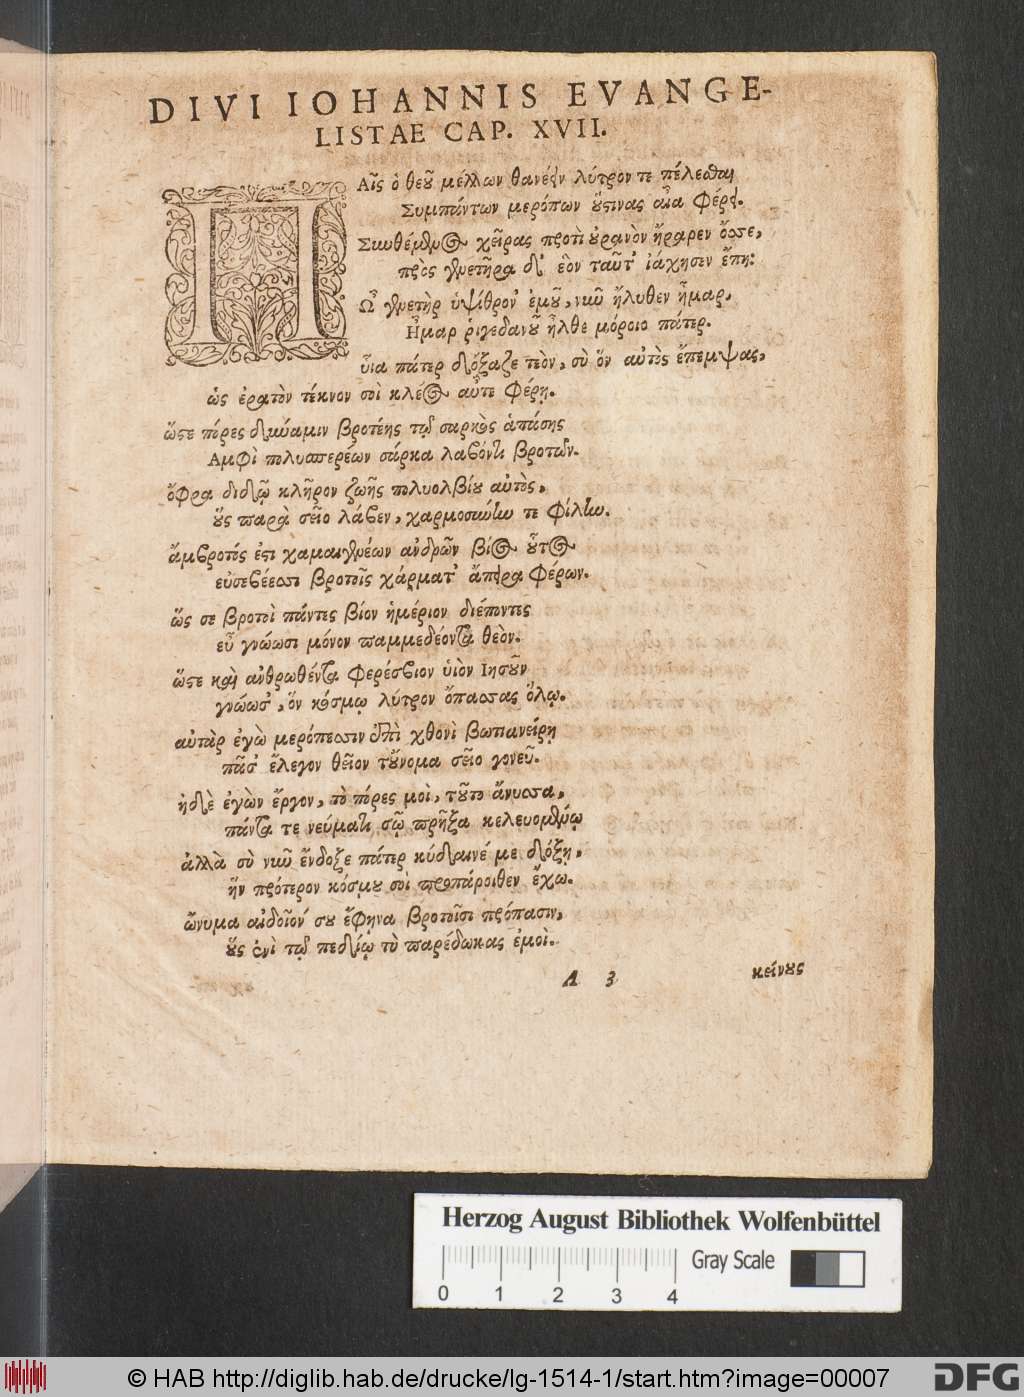 DIVI IOHANNIS EVANGE-
LISTAE CAP. XVII.
ΠΑῖς ὁ θεοῦ μέλλων θανέειν λύτρον τε πέλεσθαι
Συμπάντων μερόπων οὕστινας αἶα φέρει.
Σκυθέμενος χεῖρας προτὶ οὐρανὸν ἤραρεν ὄσσε,
πρὸς γενετῆρα δ' ἑὸν ταῦτ' ἰάχησεν ἔπη:
Ὦ γενετὴρ ὑψίθρον' ἐμοῦ, νιῦ ἤλυθεν ἦμαρ,
Ἦμαρ ῥιγεδανοῦ ἦλθε μόροιο πάτερ.
ὗια πάτερ δόξαζε τεὸν, σὺ ὅν αὐτὸς ἔπεμψας,
ὡς ἐρατὸν τέκνον σοὶ κλέος αὖτε φέρῃ.
ὥστε πόρες δύναμιν βροτέης τῷ σαρκὸς ἁπάσης
Αμφὶ πολυσπερέων σάρκα λαβόντι βροτῶν.
ὄφρα διδῷ κλῆρον ζωῆς πολυολβίου αὐτὸς,
οὓς παρὰ σεῖο λάβεν, χαρμοσύνην τε φίλην.
ἄμβροτός ἐστι χαμαιγενέων ἀνδρῶν βίος οὗτος
εὐσεβέεσσι βροτοῖς χάρματ' ἄπειρα φέρων.
ὥς σε βροτοὶ πάντες βίον ἡμέριον διέποντες
εὖ γνώωσι μόνον παμμεδέοντα θεὸν.
ὥστε καὶ ἀνθρωθέντα φερέσβιον ὑιὸν Ιησοῦν
γνώωσ', ὅν κόσμῳ λύτρον ὄπασσας ὅλῳ.
αὐτὰρ ἐγὼ μερόπεσσιν ἐπὶ χθονὶ βωτιανείρῃ
πᾶσ' ἔλεγον θεῖον τοὔνομα σεῖο γονεῦ.
ἠδὲ ἐγὼν ἔργον, τὸ πόρες μοὶ, τοῦτο ἄνυσσα,
πάντα τε νεύματι σῷ πρῆξα κελευομένῳ
ἀλλὰ σὺ νιῦ ἔνδοξε πάτερ κύδαινέ με δόξῃ,
ἥν πρότερον κόσμου σοὶ προπάροιθεν ἔχω.
ὤνυμα αἰδοῖόν σου ἔφηνα βροτοῖσι πρόπασιν,
οὓς ἐνὶ τῷ πεδίῳ τὺ παρέδωκας ἐμοὶ.
A 3
κείνους
Herzog August Bibliothek Wolfenbüttel
Gray Scale
0 1 2 3 4
© HAB http://diglib.hab.de/drucke/lg-1514-1/start.htm?image=00007
DFG